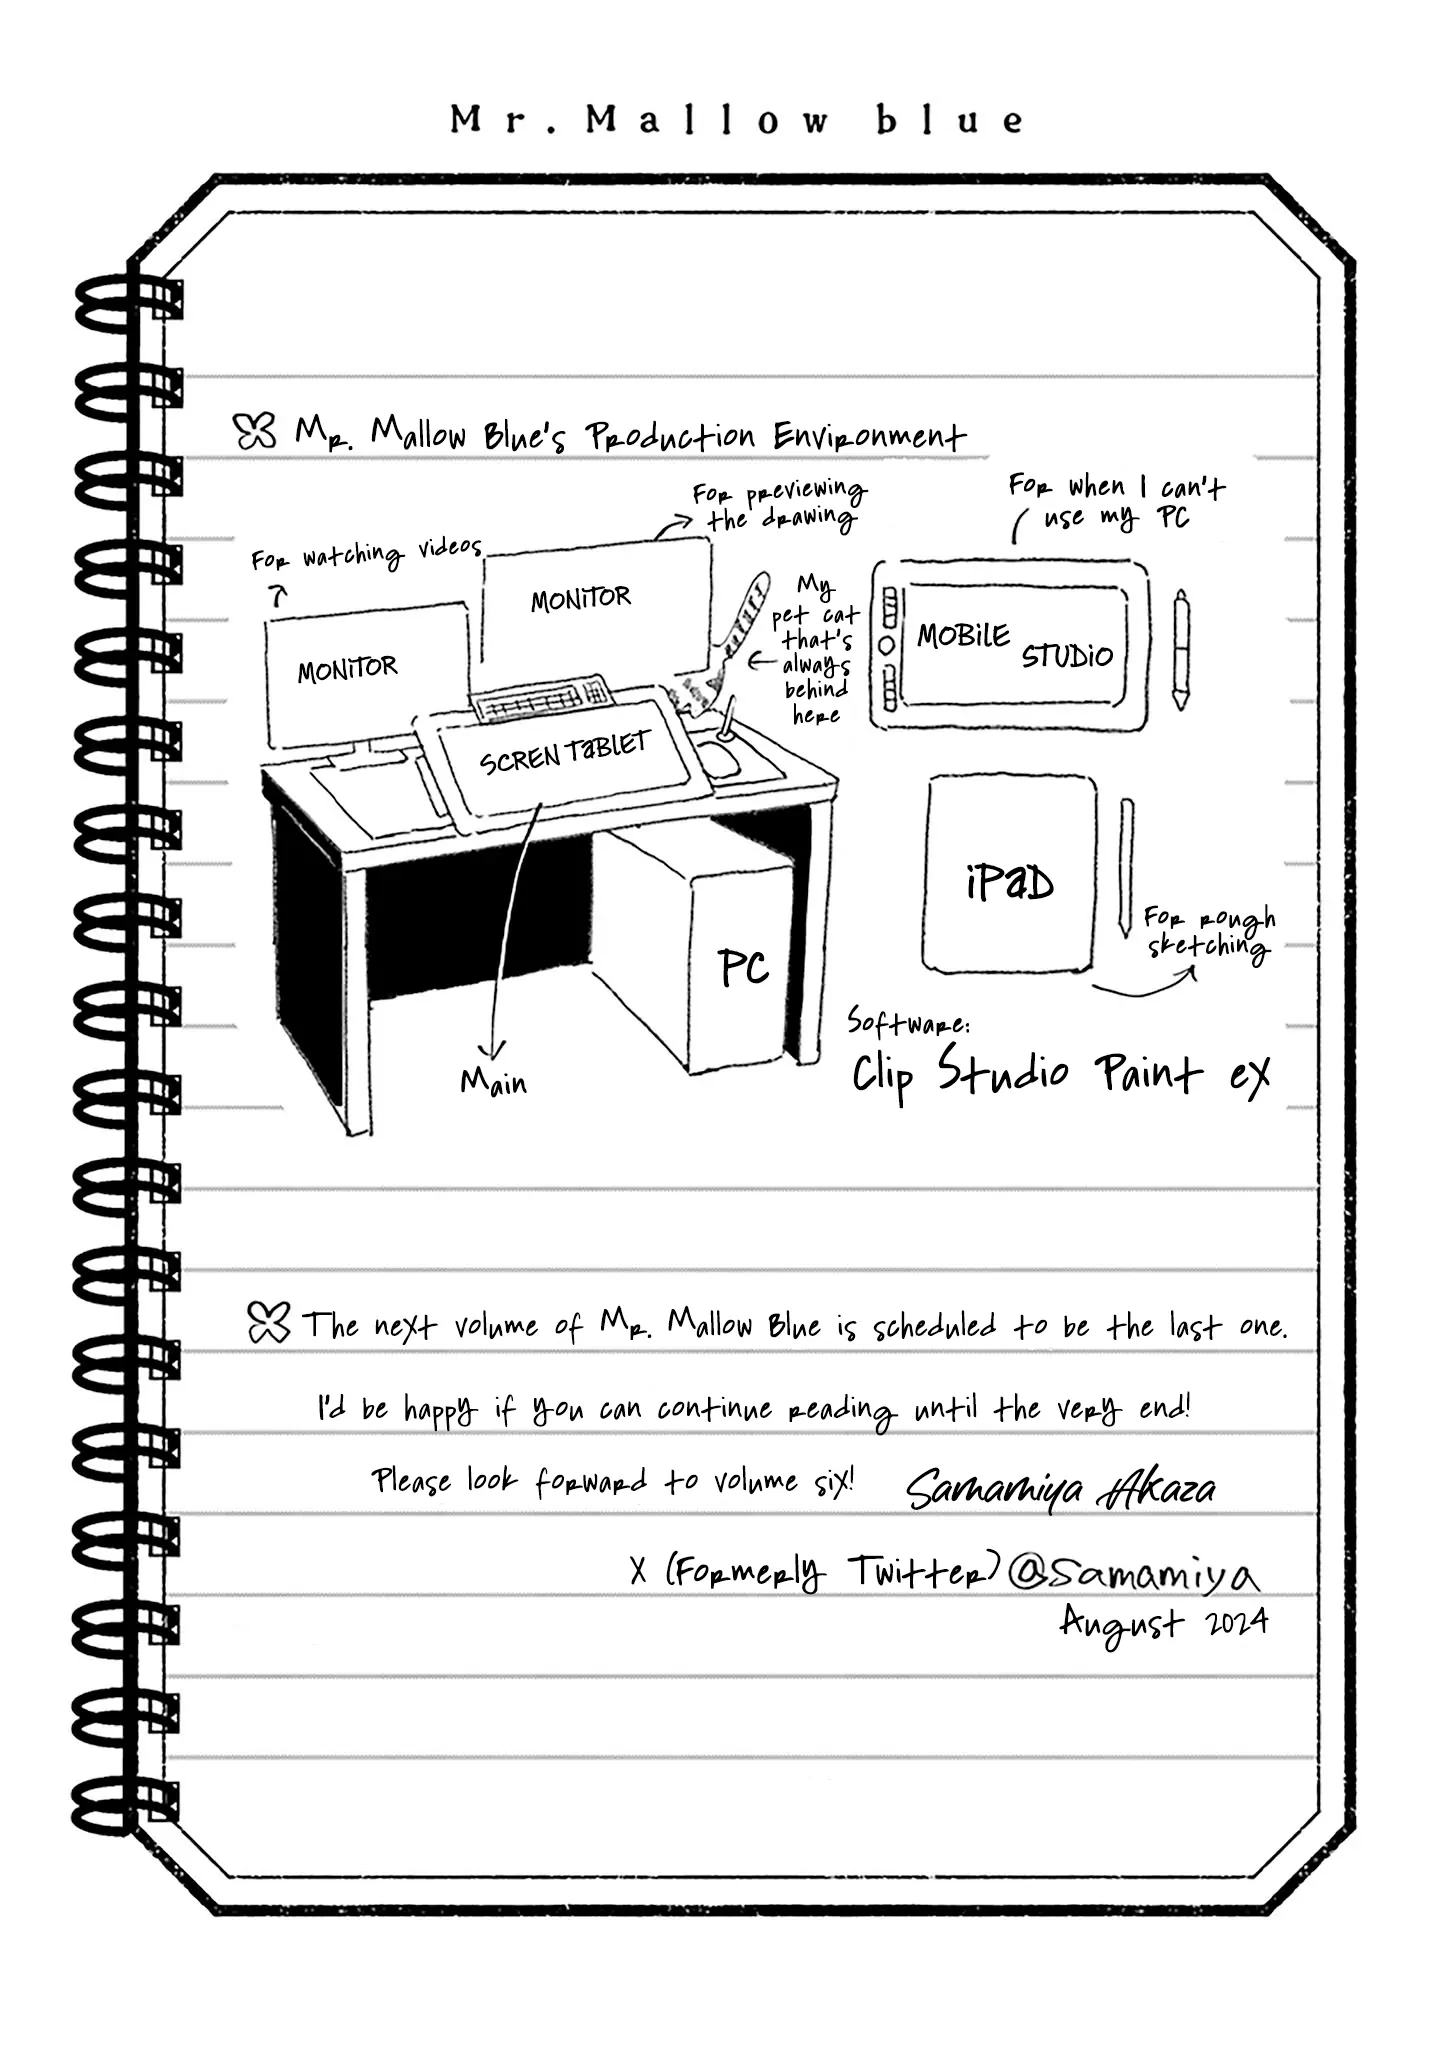 Mr. Mallow blue
Mr. Mallow Blue's Production Environment
For watching videos
For previewing
the drawing
For when I can't
use my PC
MONITOR
MONITOR
My
pet cat
that's
always
behind
here
MOBILE
STUDIO
SCREN TABLET
iPAD
For rough
sketching
PC
Main
Software:
Clip Studio Paint ex
The next volume of Mr. Mallow Blue is scheduled to be the last one.
I'd be happy if you can continue reading until the very end!
Please look forward to volume six!
Samamiya Akaza
X (Formerly Twitter) @samamiya
August 2024